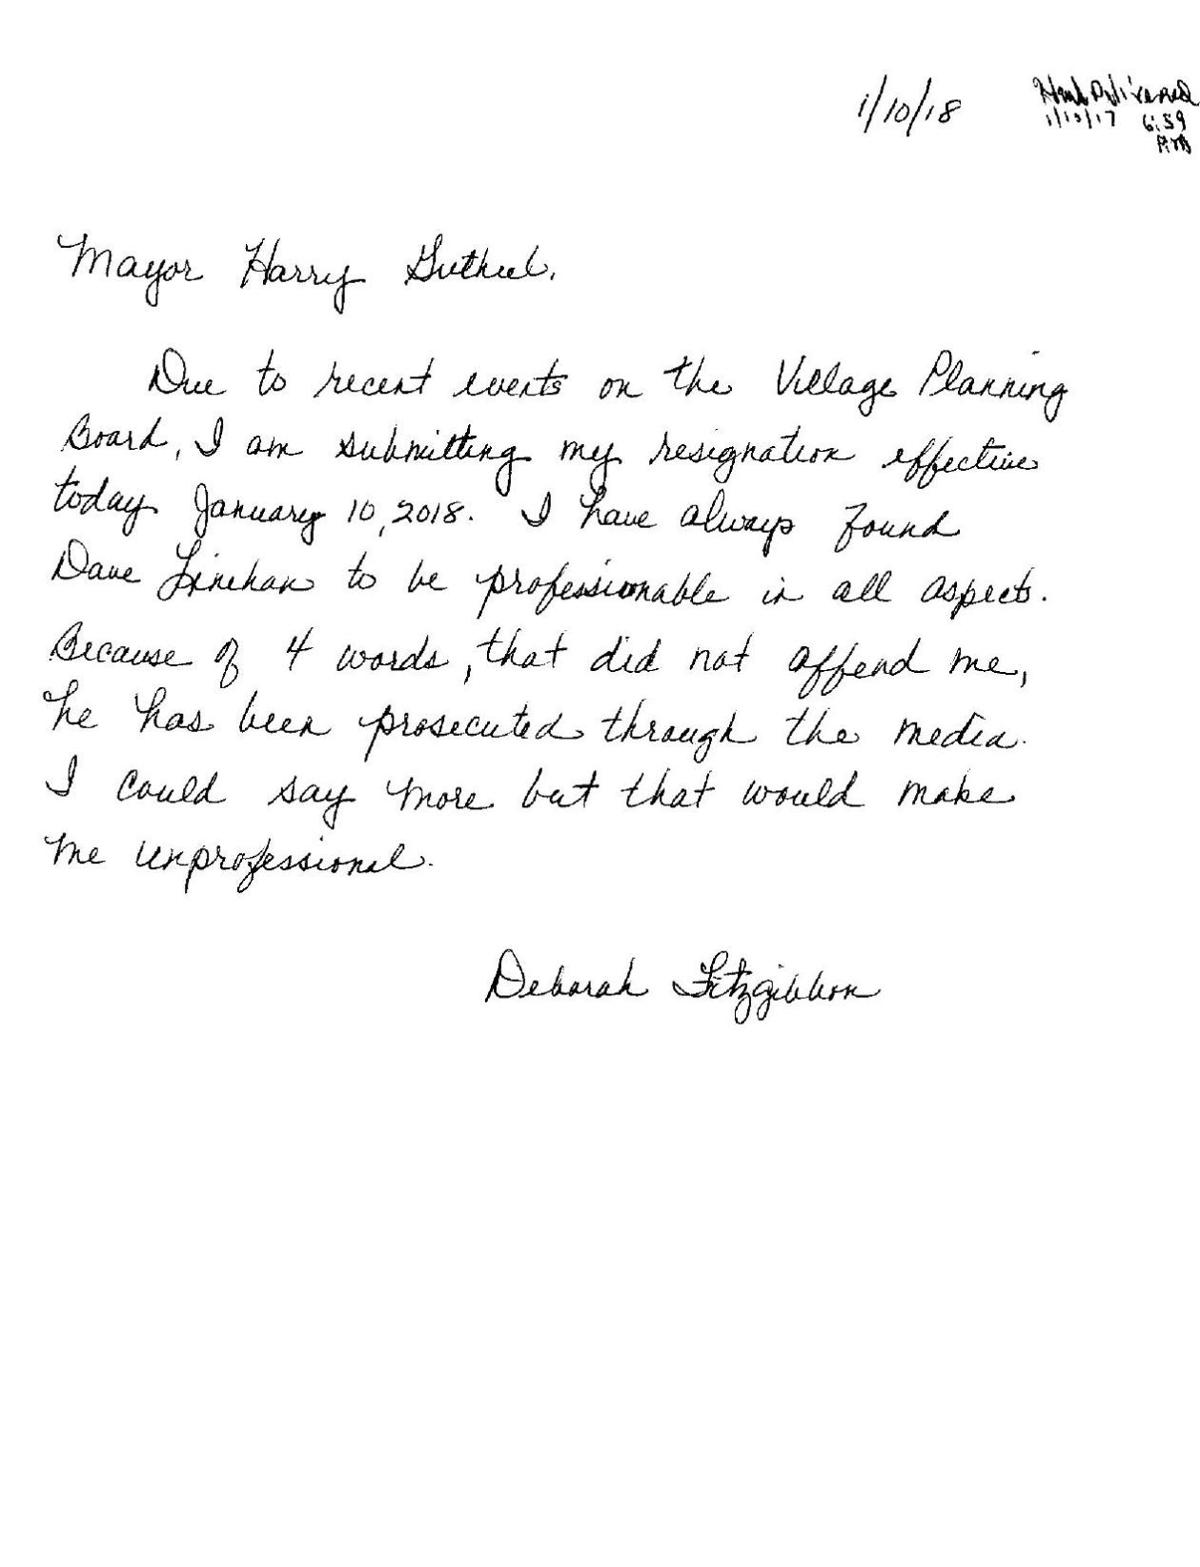 1/10/18
Hand Delivered
1/10/17 6:59
PM
Mayor Harry Gutheil,
Due to recent events on the Village Planning
Board, I am submitting my resignation effective
today January 10, 2018. I have always found
Dave Linehan to be professionable in all aspects.
Because of 4 words, that did not offend me,
he has been prosecuted through the media.
I could say more but that would make
me unprofessional.
Deborah Fitzgibbon